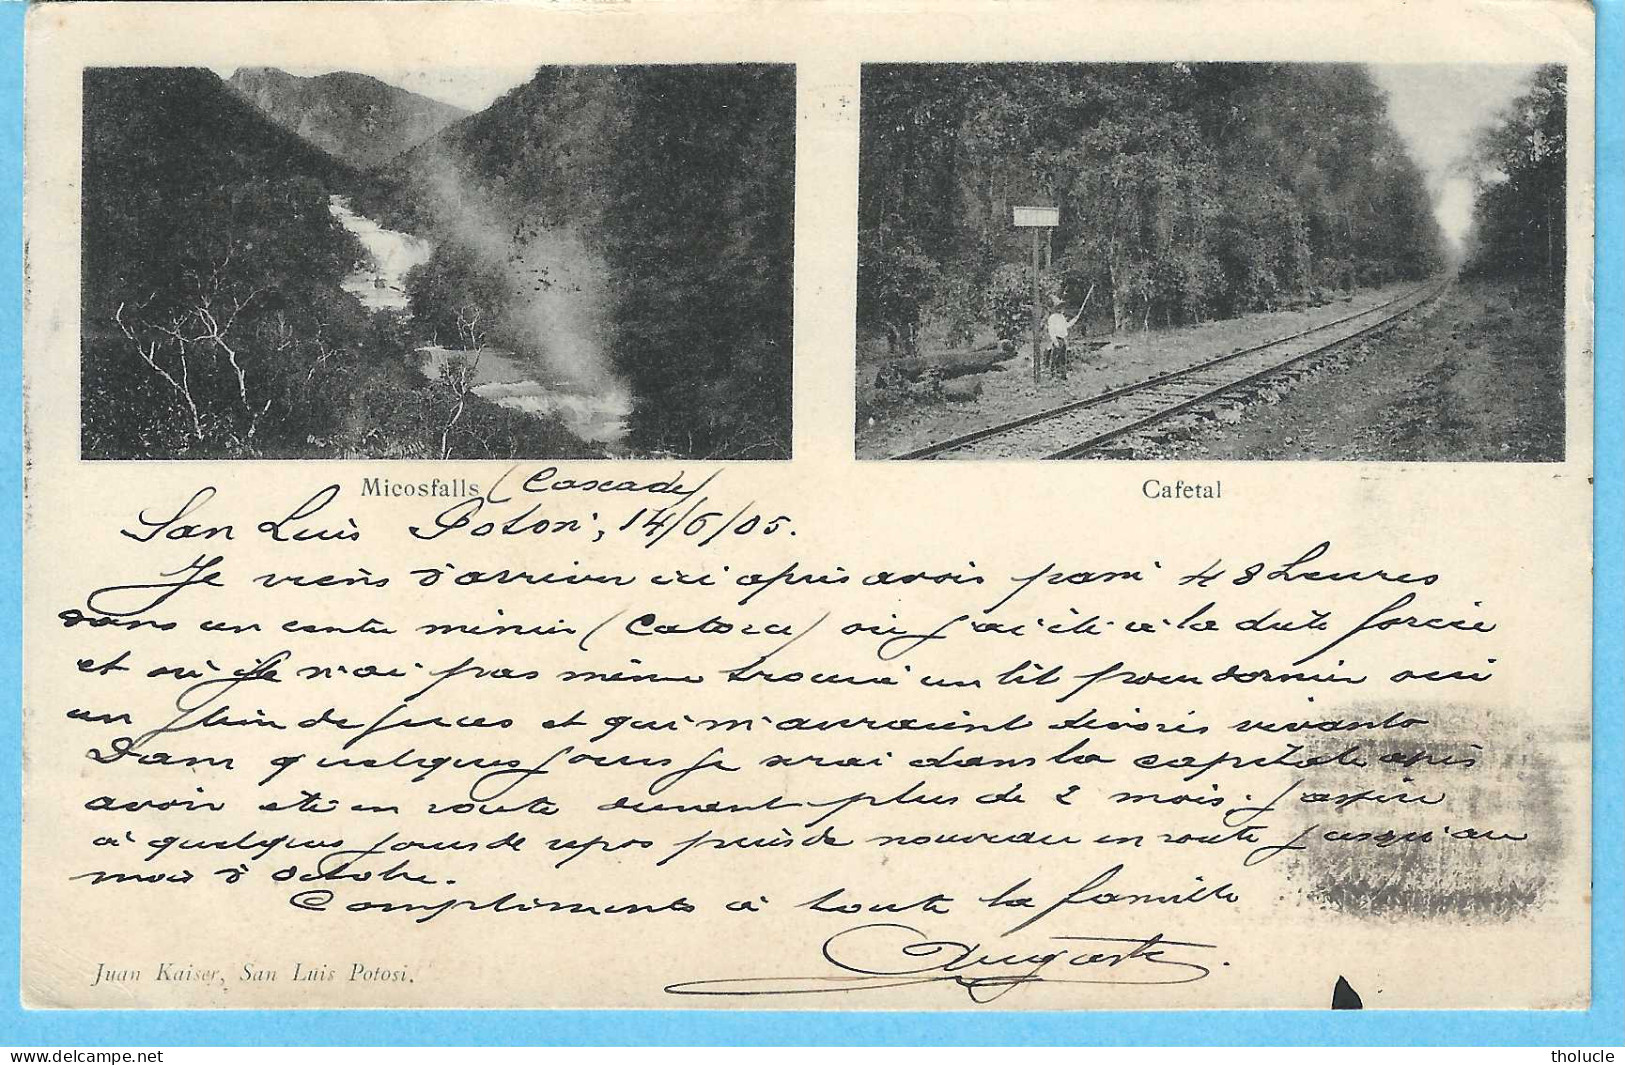 Micosfalls (Cascade)
Cafetal
San Luis Potosi, 14/6/05.
Je viens d'arriver ici après avoir passé 48 heures
dans un centre minier (Catorce) où j'ai été à la diète forcée
et où je n'ai pas même trouvé un lit pour dormir oui
un plein de puces et qui m'auraient dévoré vivants
Dans quelques jours je serai dans la capitale après
avoir été en route durant plus de 2 mois. J'aspire
à quelques jours de repos puis de nouveau en route jusqu'au
mois d'octobre.
Compliments à toute la famille
Auguste.
Juan Kaiser, San Luis Potosi.
www.delcampe.net
tholucle